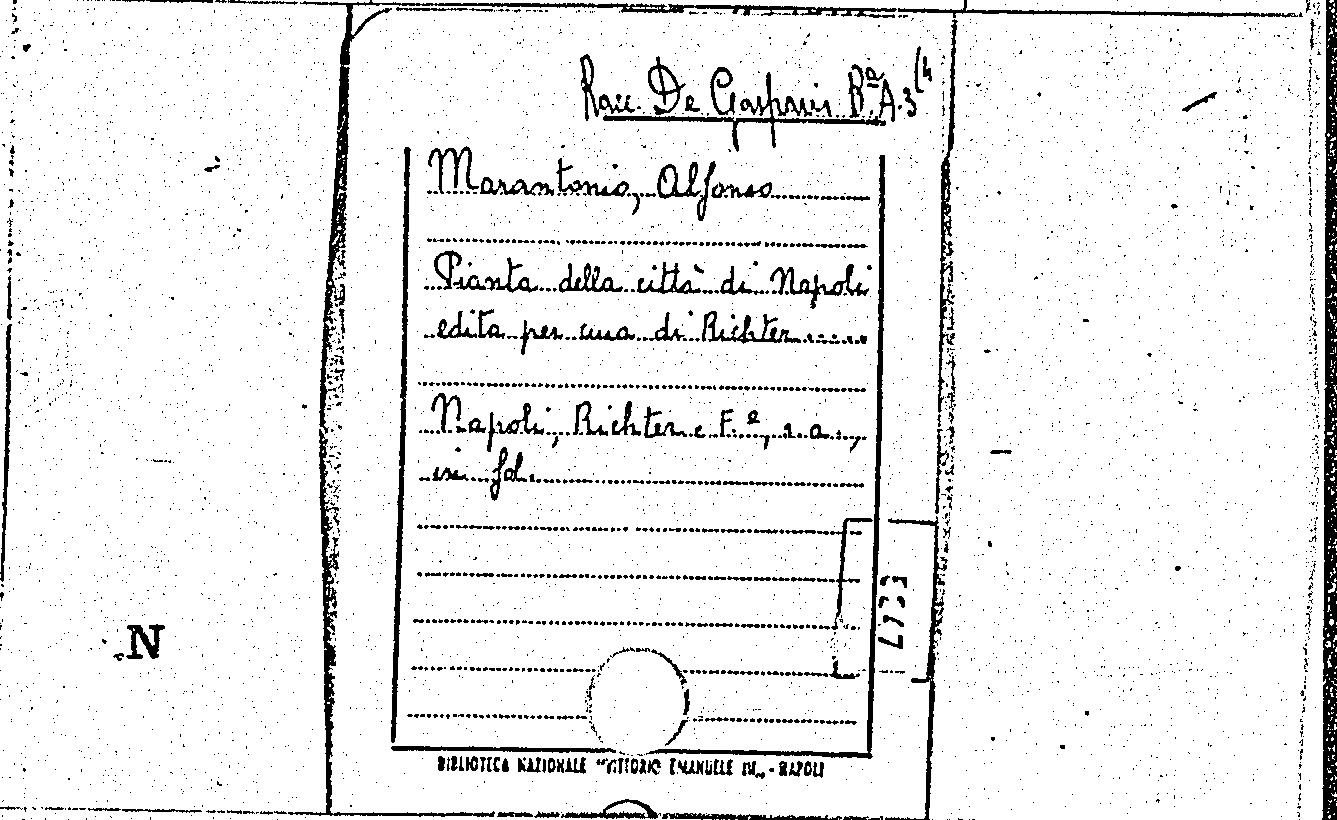 Racc. De Gasparis Bª A. 3 (4
Marantonio, Alfonso
Pianta della città di Napoli
edita per cura di Richter.....
Napoli, Richter e F.º, s. a.,
in fol.
N
BIBLIOTECA NAZIONALE "VITTORIO EMANUELE III„ - NAPOLI